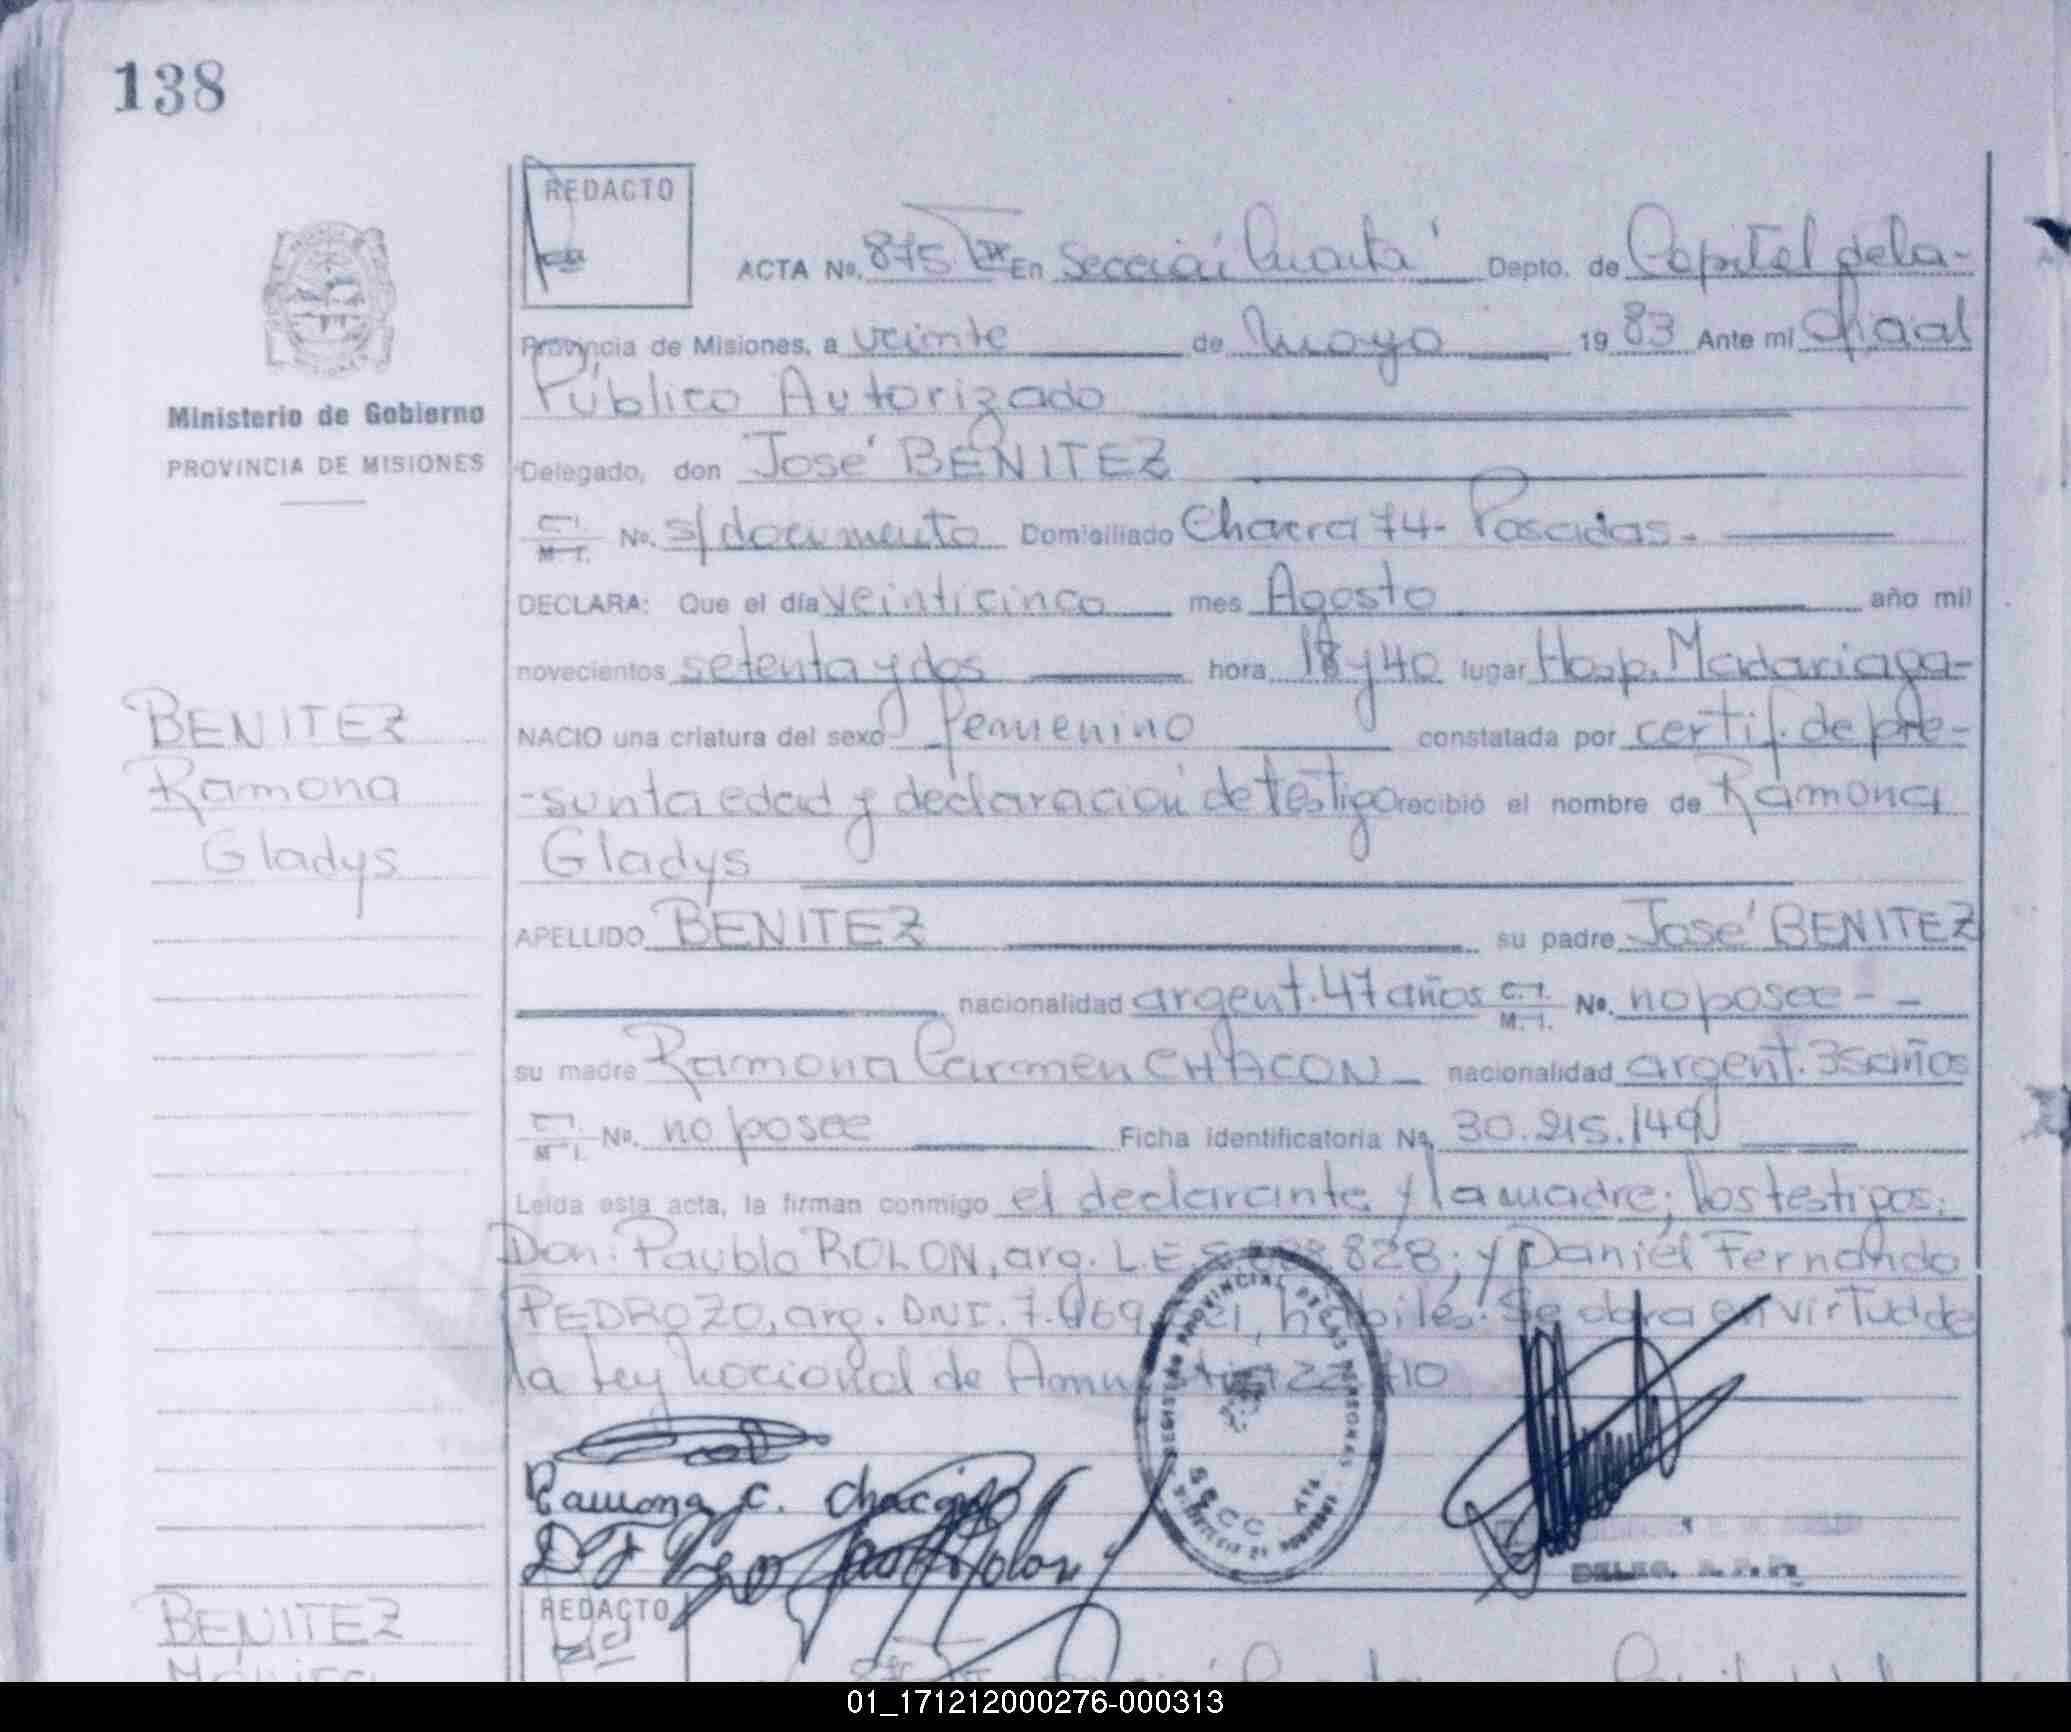 138
REDACTO
ACTA No. 875 En Sección Cuarta Depto. de Capital de la-
Provincia de Misiones, a veinte de Mayo 1983 Ante mi Oficial
Público Autorizado
Ministerio de Gobierno
PROVINCIA DE MISIONES
Delegado, don José BENITEZ
C.I. M.I. No. s/documento Domiciliado Chacra 74- Posadas.
DECLARA: Que el día veinticinco mes Agosto año mil
novecientos setenta y dos hora 18 y 40 lugar Hosp. Madariaga-
NACIO una criatura del sexo femenino constatada por certif. de pre-
-sunta edad y declaración de testigo recibió el nombre de Ramona
Gladys
BENITEZ
Ramona
Gladys
APELLIDO BENITEZ su padre José BENITEZ
nacionalidad argent. 47 años C.I. M.I. No. no posee - -
su madre Ramona Carmen CHACON nacionalidad argent. 35 años
C.I. M.I. No. no posee Ficha identificatoria No. 30.215.149
Leida esta acta, la firman conmigo el declarante y la madre; los testigos:
Don: Paublo ROLON, arg. L.E. 828; y Daniel Fernando
PEDROZO, arg. DNI. 7. 69 hábiles. Se obra en virtud de
la Ley Nacional de 22 10
Ramona C. Chacon
Rolon
REGISTRO PROVINCIAL DE LAS PERSONAS
SECC. 4TA
DELEG.
REDACTO
BENITEZ
01_171212000276-000313